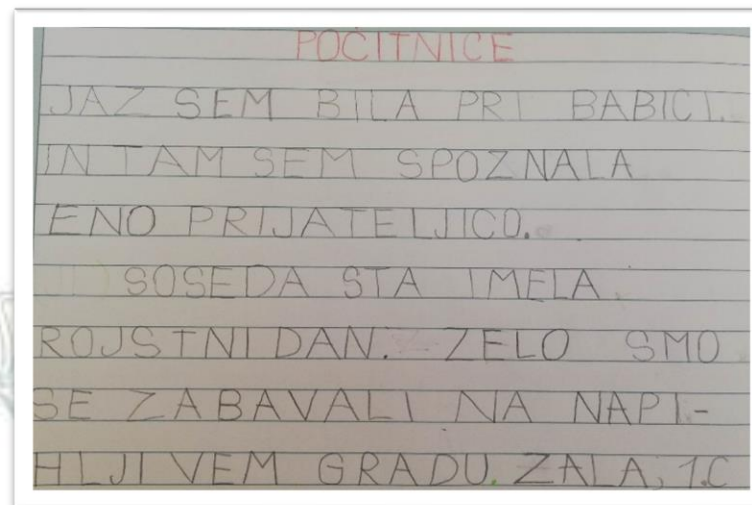 POČITNICE
JAZ SEM BILA PRI BABICI.
IN TAM SEM SPOZNALA
ENO PRIJATELJICO.
SOSEDA STA IMELA
ROJSTNI DAN. ZELO SMO
SE ZABAVALI NA NAPI-
HLJIVEM GRADU. ZALA, 1.C